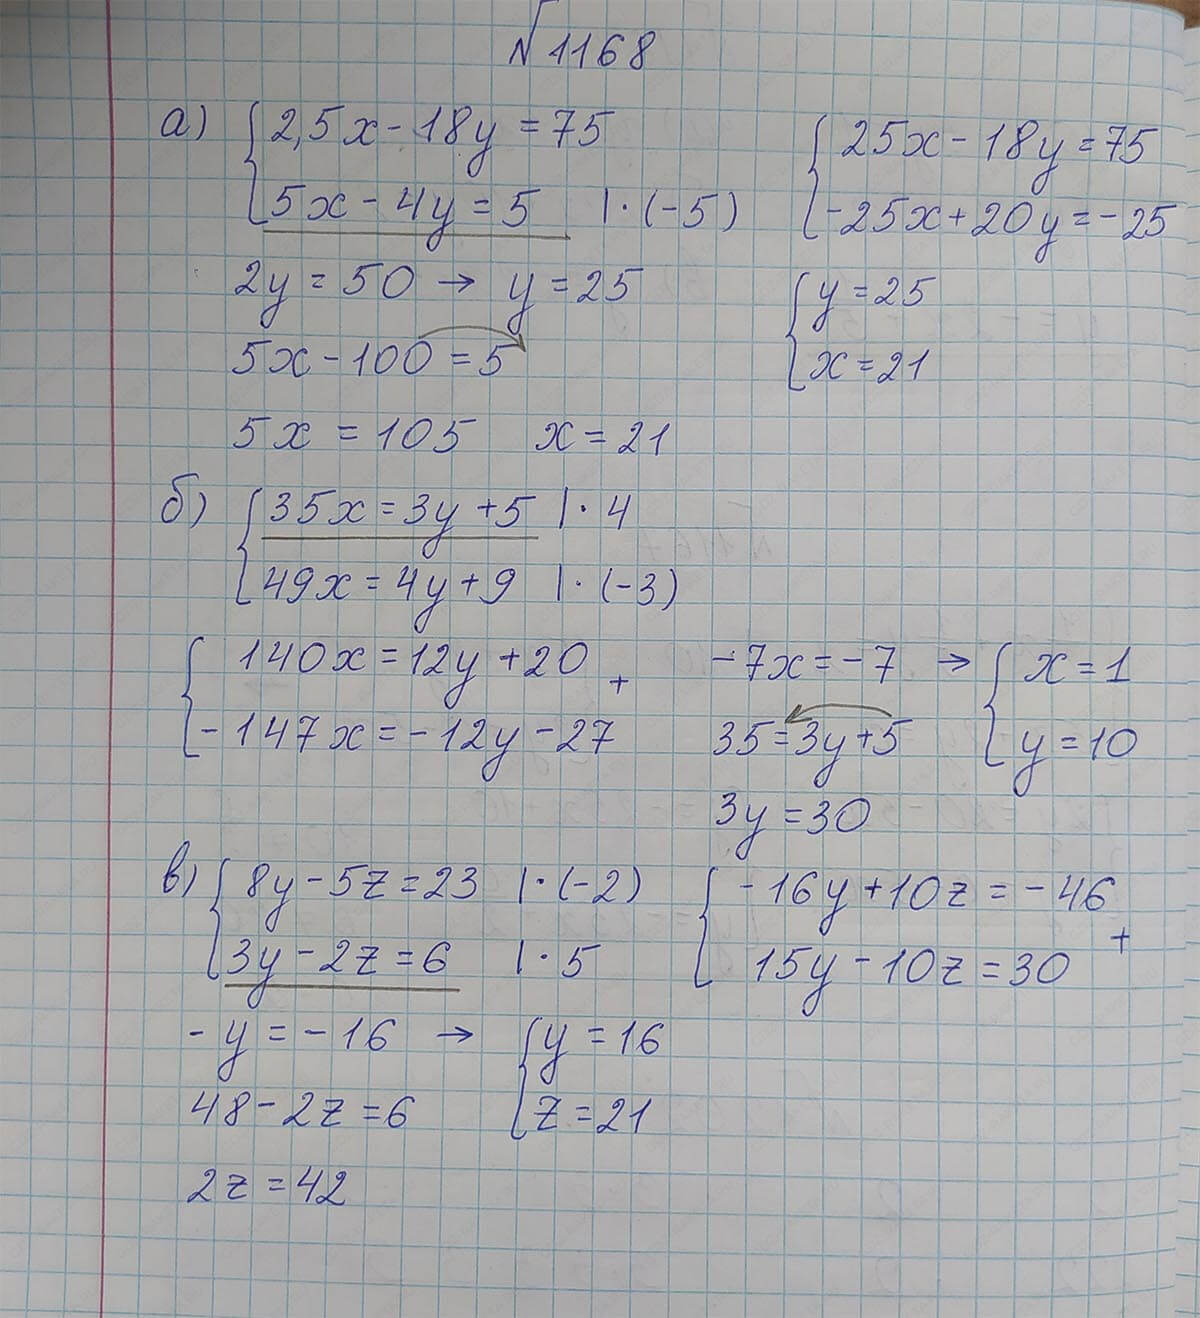 №1168
а) { 2,5x - 18y = 75
5x - 4y = 5 | · (-5)
{ 25x - 18y = 75
-25x + 20y = -25
2y = 50 → y = 25
5x - 100 = 5
5x = 105 x = 21
{ y = 25
x = 21
б) { 35x = 3y + 5 | · 4
49x = 4y + 9 | · (-3)
{ 140x = 12y + 20 +
-147x = -12y - 27
-7x = -7 → { x = 1
35 = 3y + 5 y = 10
3y = 30
в) { 8y - 5z = 23 | · (-2)
3y - 2z = 6 | · 5
{ -16y + 10z = -46 +
15y - 10z = 30
-y = -16 → { y = 16
48 - 2z = 6 z = 21
2z = 42